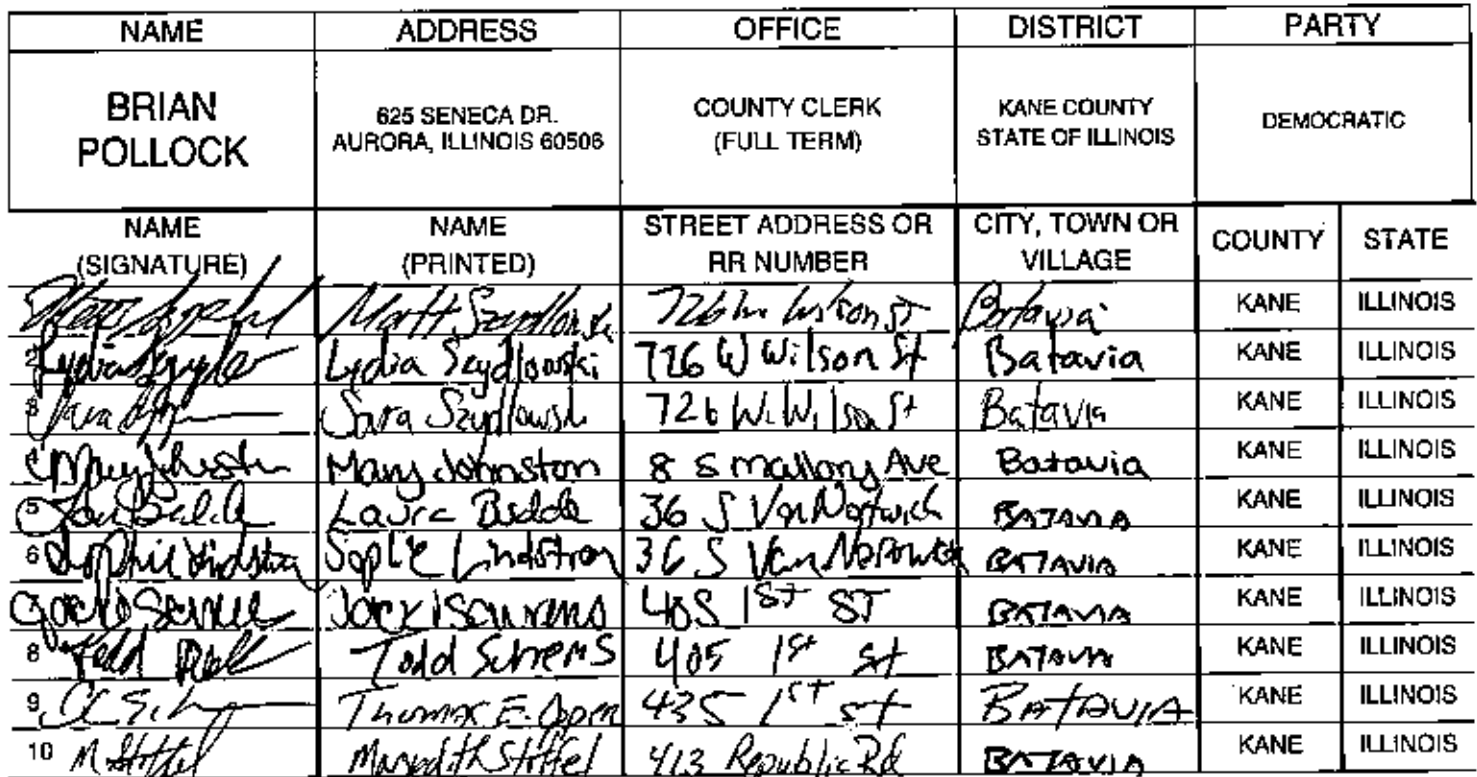 NAME ADDRESS OFFICE DISTRICT PARTY
BRIAN POLLOCK
625 SENECA DR. AURORA, ILLINOIS 60506
COUNTY CLERK (FULL TERM)
KANE COUNTY STATE OF ILLINOIS
DEMOCRATIC
NAME (SIGNATURE) NAME (PRINTED) STREET ADDRESS OR RR NUMBER CITY, TOWN OR VILLAGE COUNTY STATE
Matt Szydlowski 726 W Wilson ST Batavia KANE ILLINOIS
2 Lydia Szydlowski 726 W Wilson St Batavia KANE ILLINOIS
3 Sara Szydlowski 726 W. Wilson St Batavia KANE ILLINOIS
Mary Johnston 8 S mallory Ave Batavia KANE ILLINOIS
5 Laura 36 S Van Nortwick BATAVIA KANE ILLINOIS
6 Sophie Lindstrom 36 S Van Nortwick BATAVIA KANE ILLINOIS
405 1ST ST BATAVIA KANE ILLINOIS
8 Todd 405 1st st BATAVIA KANE ILLINOIS
9 Thomas E. 435 1st st BATAVIA KANE ILLINOIS
10 Meredith 413 Republic Rd BATAVIA KANE ILLINOIS